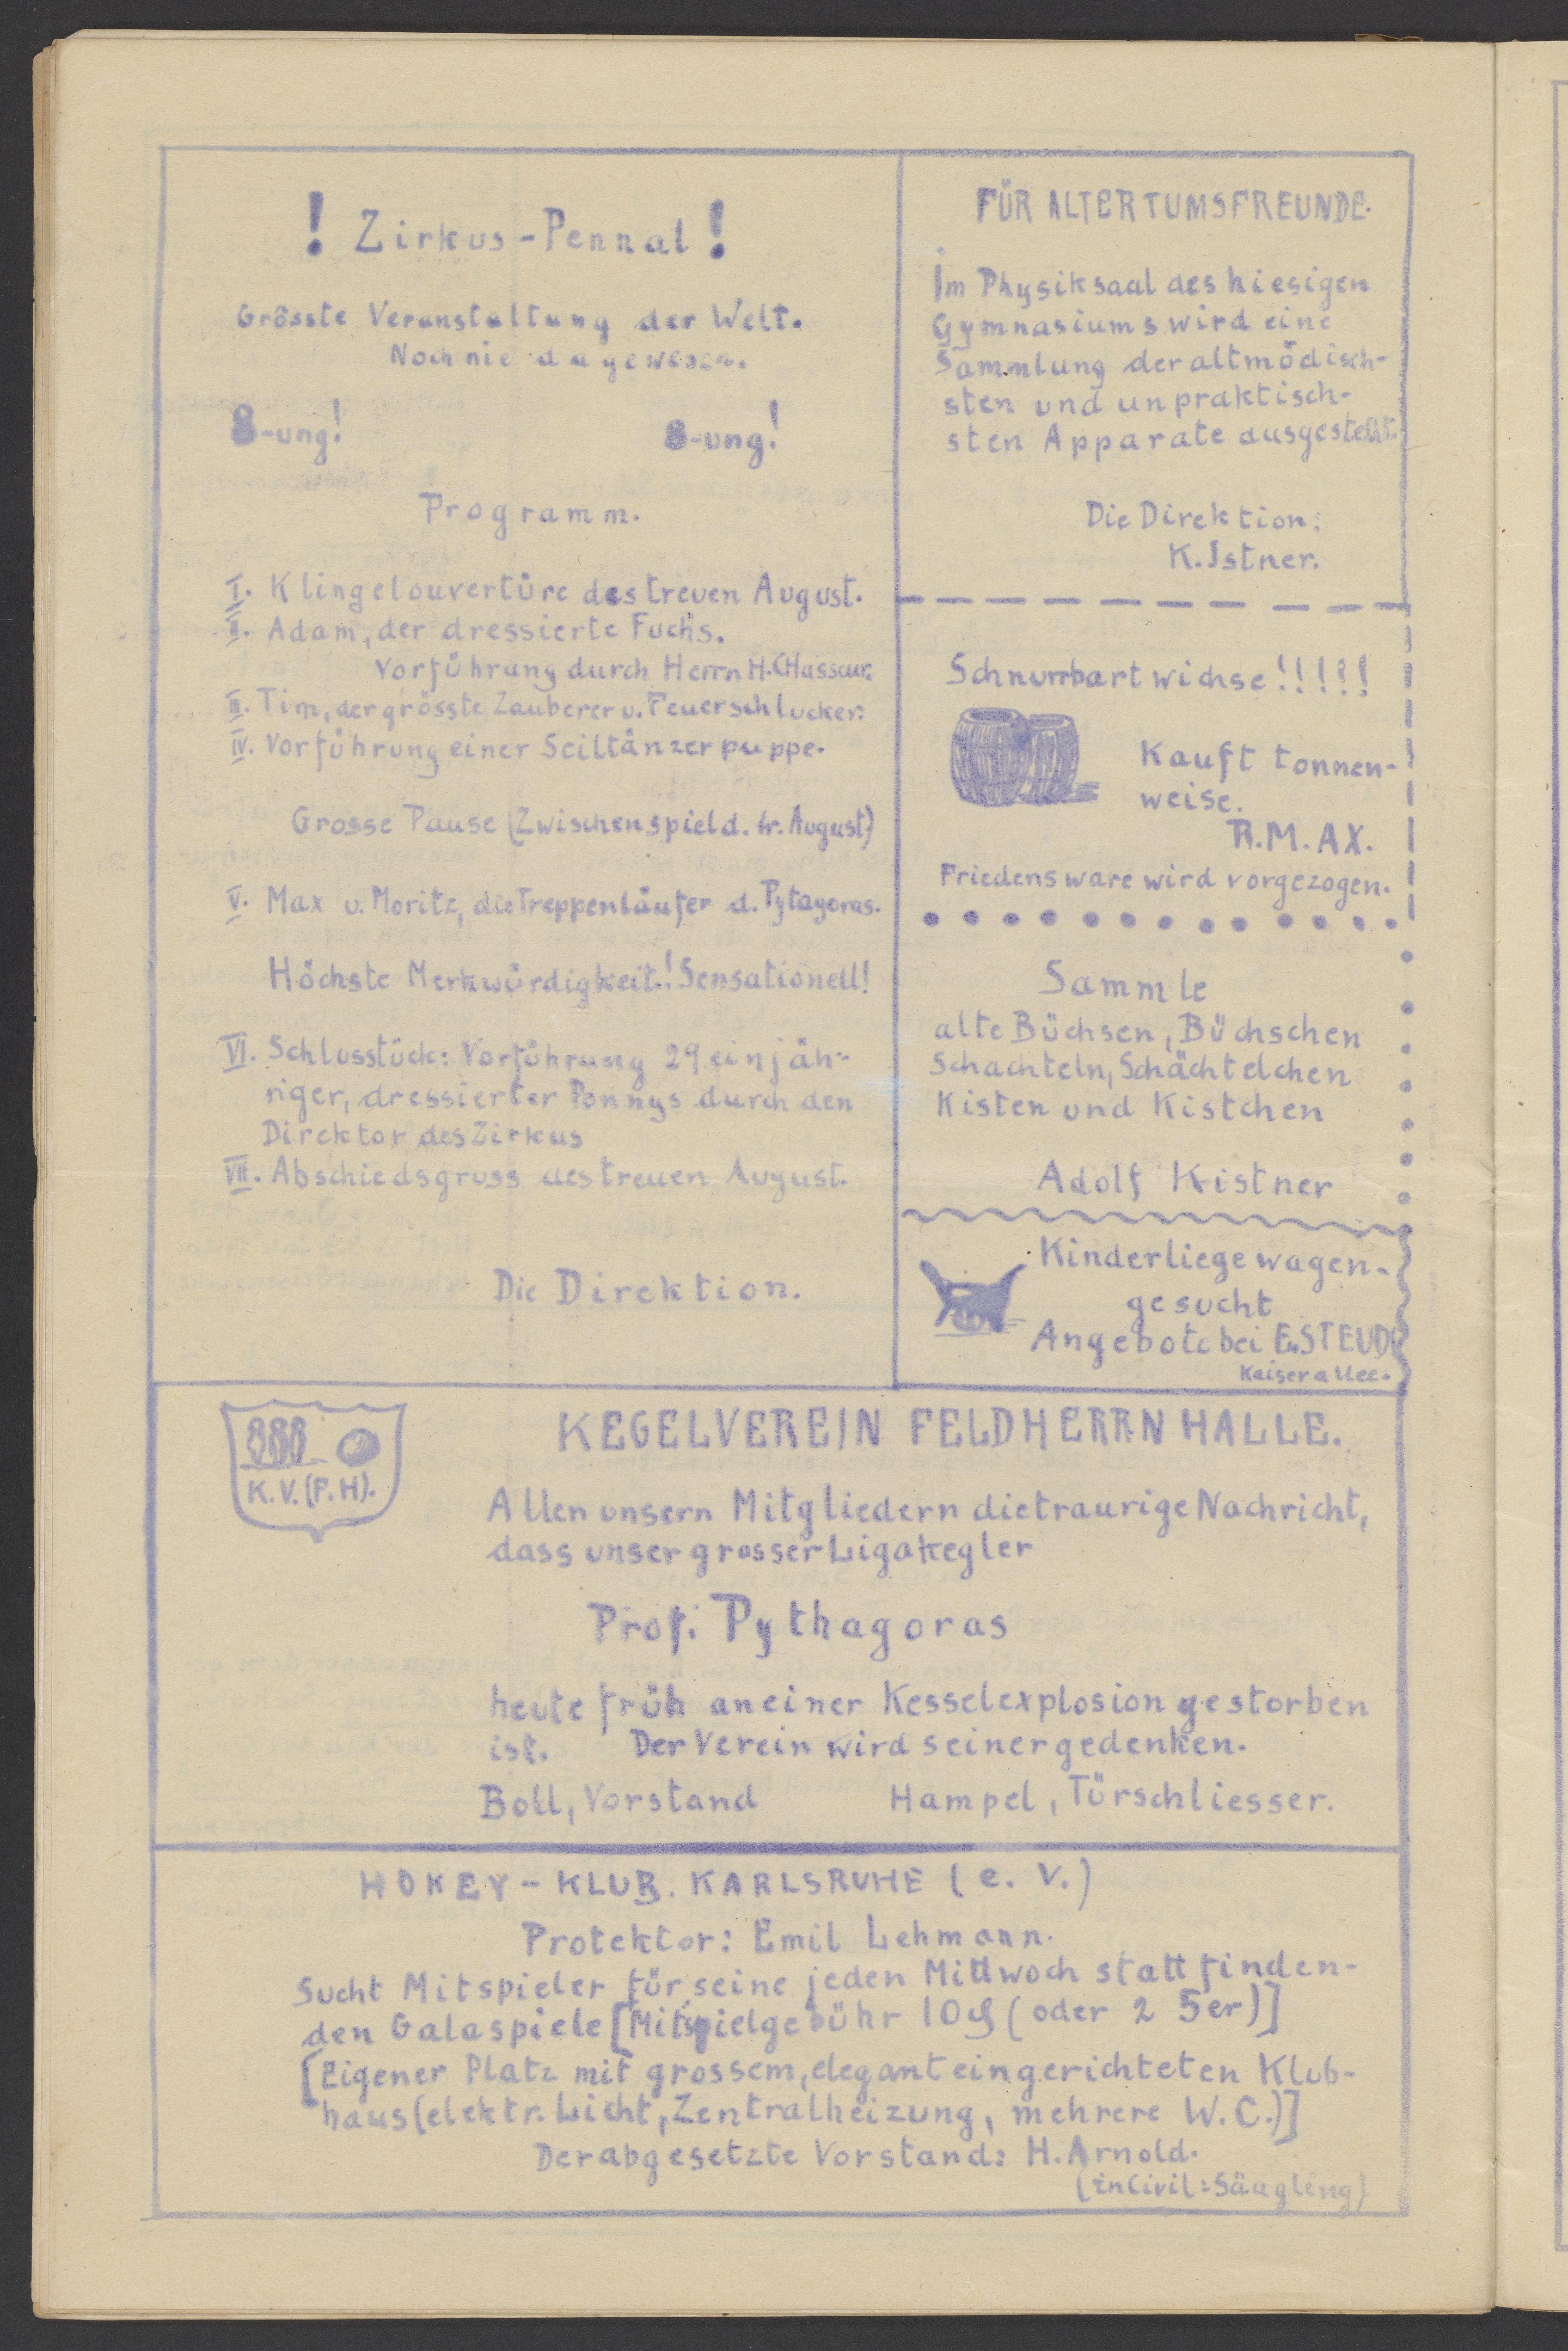 ! Zirkus-Pennal !
Grösste Veranstaltung der Welt.
Noch nie dagewesen.
8-ung! 8-ung!
Programm.
I. Klingelouvertüre des treuen August.
II. Adam, der dressierte Fuchs.
Vorführung durch Herrn H. CHasseur.
III. Tim, der grösste Zauberer u. Feuerschlucker.
IV. Vorführung einer Seiltänzerpuppe.
Grosse Pause (Zwischenspiel d. tr. August)
V. Max u. Moritz, die Treppenläufer d. Pytagoras.
Höchste Merkwürdigkeit.! Sensationell!
VI. Schlusstück: Vorführung 29 einjäh-
riger, dressierter Ponnys durch den
Direktor des Zirkus
VII. Abschiedsgruss des treuen August.
Die Direktion.
FÜR ALTERTUMSFREUNDE.
Im Physiksaal des hiesigen
Gymnasiums wird eine
Sammlung der altmödisch-
sten und unpraktisch-
sten Apparate ausgestellt.
Die Direktion:
K. Istner.
Schnurrbartwichse!!!!!
Kauft tonnen-
weise.
R.M.AX.
Friedensware wird vorgezogen.
Sammle
alte Büchsen, Büchschen
Schachteln, Schächtelchen
Kisten und Kistchen
Adolf Kistner
Kinderliegewagen-
gesucht
Angebote bei E. STEUDE
Kaiserallee.
K.V.(F.H).
KEGELVEREIN FELDHERRNHALLE.
Allen unsern Mitgliedern die traurige Nachricht,
dass unser grosser Ligakegler
Prof. Pythagoras
heute früh an einer Kesselexplosion gestorben
ist. Der Verein wird seiner gedenken.
Boll, Vorstand Hampel, Türschliesser.
HOKEY-KLUB. KARLSRUHE (e. V.)
Protektor: Emil Lehmann.
Sucht Mitspieler für seine jeden Mittwoch stattfinden-
den Galaspiele [Mitspielgebühr 10₰ (oder 2 5er)]
[Eigener Platz mit grossem, elegant eingerichteten Klub-
haus (elektr. Licht, Zentralheizung, mehrere W.C.)]
Der abgesetzte Vorstand: H. Arnold.
(in Civil: Säugling)